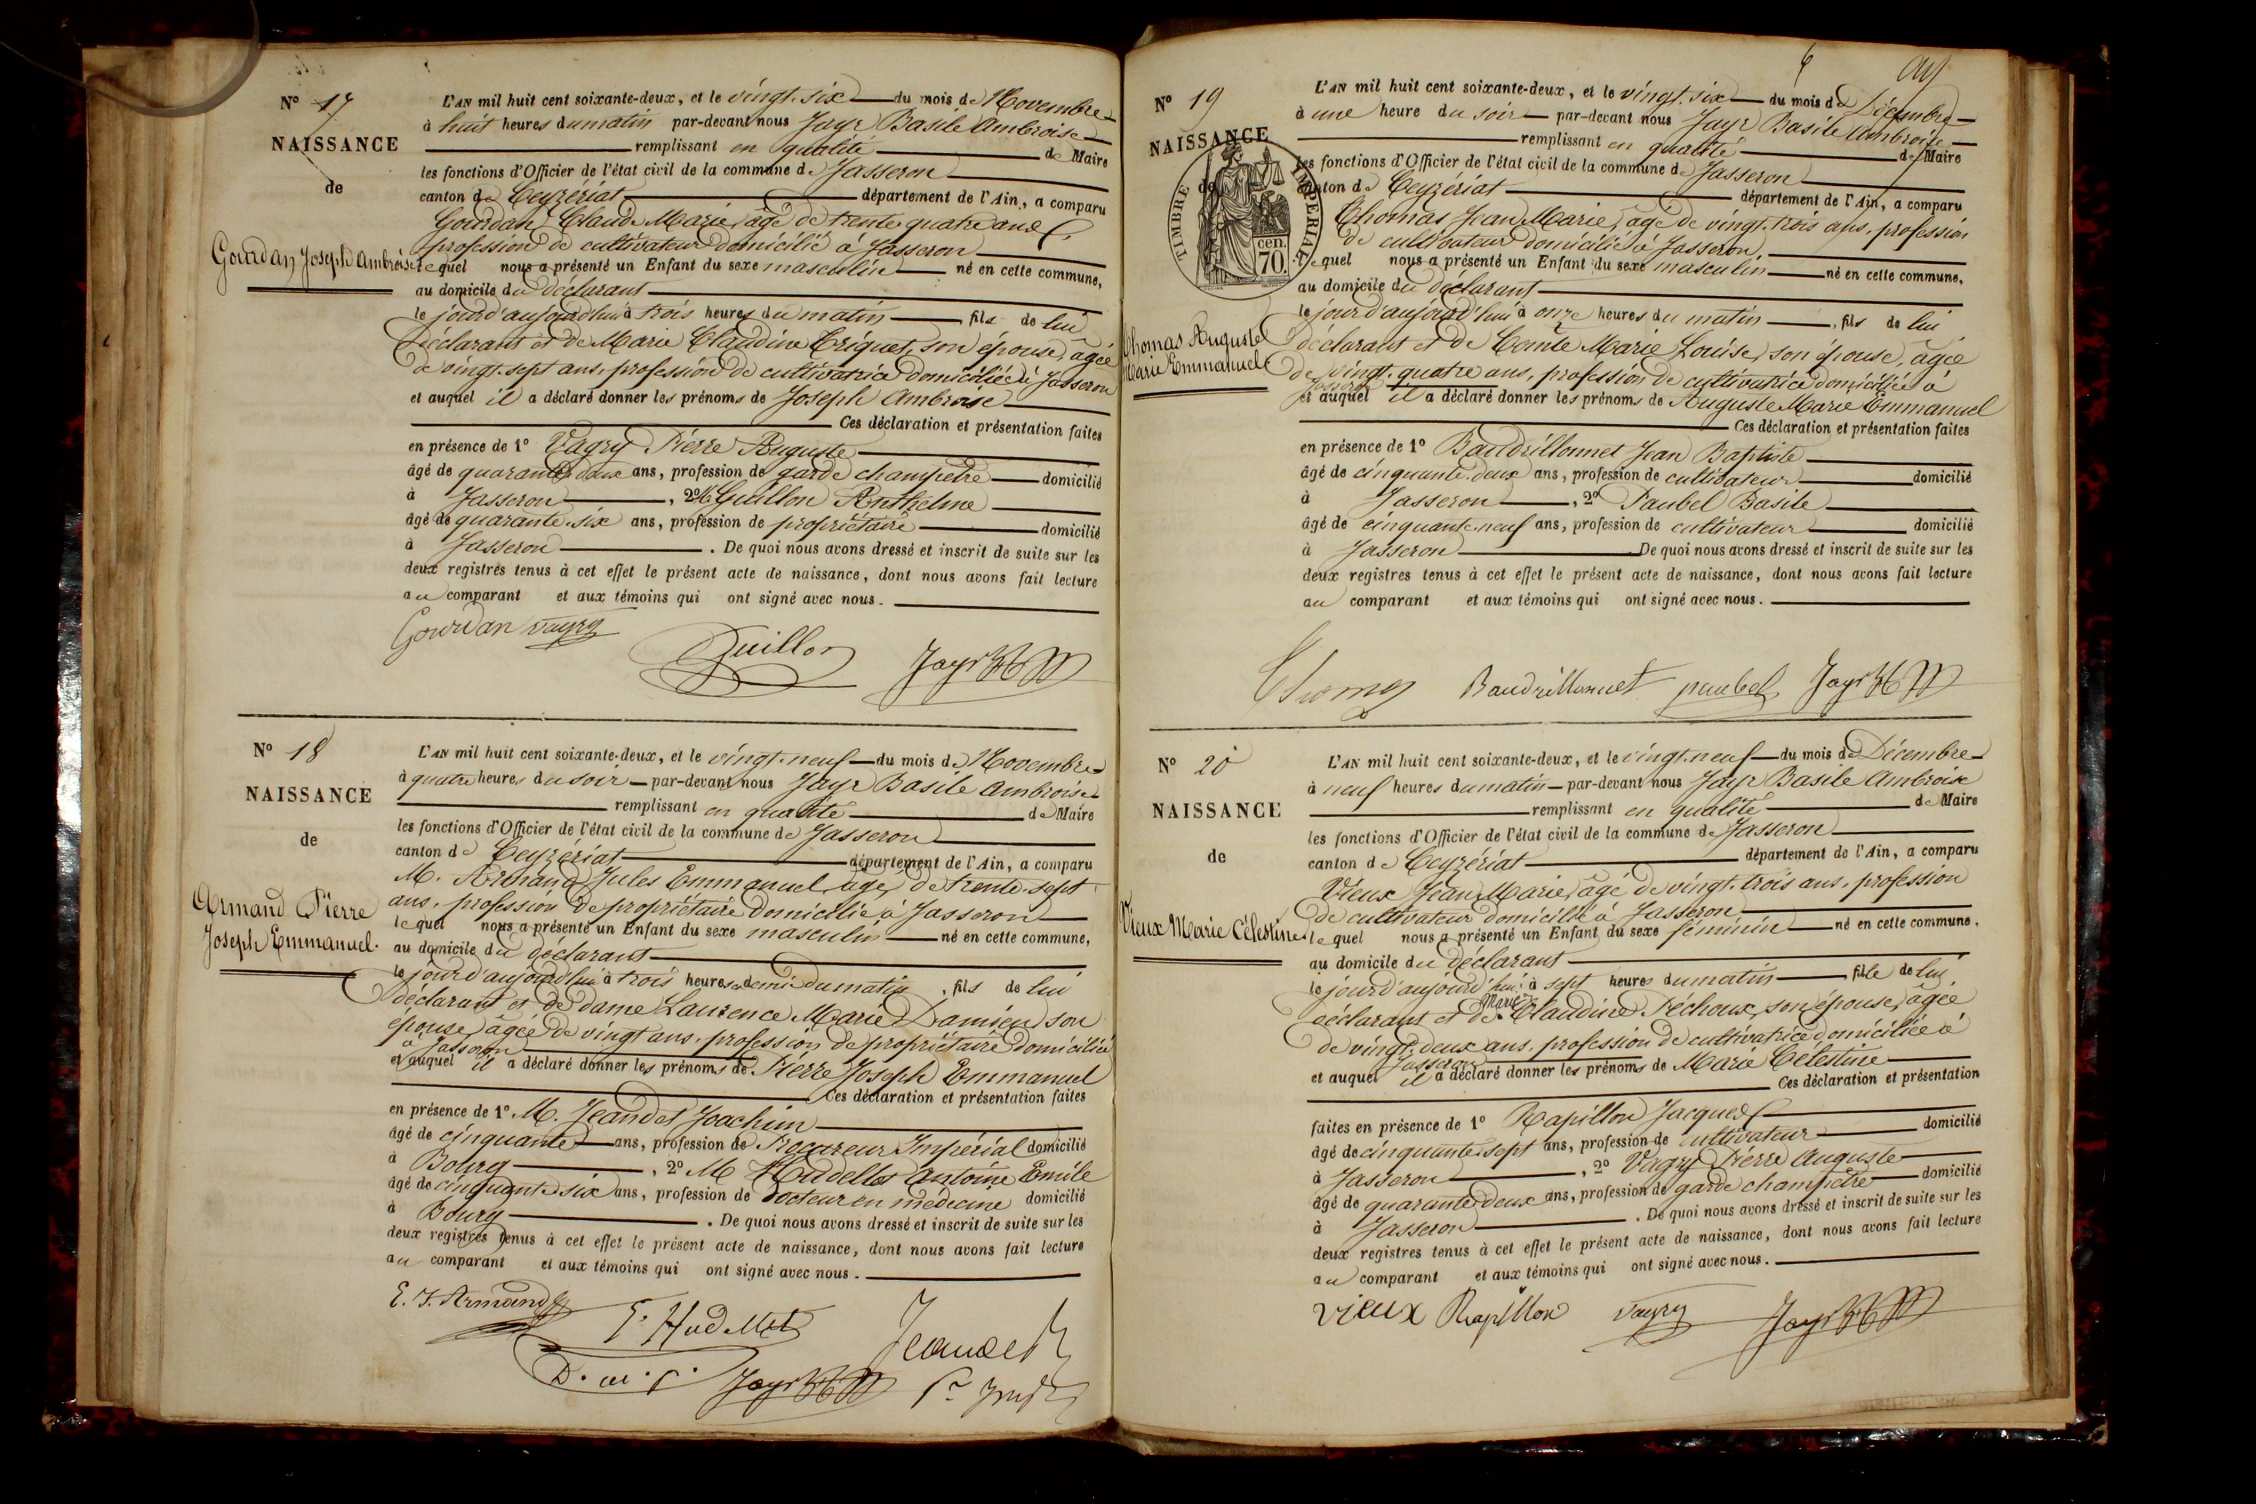 N° 17
NAISSANCE
de
Gourdan Joseph Ambroise
L'AN mil huit cent soixante-deux, et le vingt-six du mois de Novembre
à huit heures du matin par-devant nous Jayr Basile Ambroise
remplissant en qualité de Maire
les fonctions d'Officier de l'état civil de la commune de Jasseron
canton de Ceyzériat département de l'Ain, a comparu
Gourdan Claude Marie, âgé de trente quatre ans
profession de cultivateur domicilié à Jasseron
lequel nous a présenté un Enfant du sexe masculin né en cette commune,
au domicile du déclarant
le jourd'aujourd'hui à trois heures du matin, fils de lui
déclarant et de Marie Claudine Criquet, son épouse, âgée
de vingt-sept ans, profession de cultivatrice domiciliée à Jasseron
et auquel il a déclaré donner les prénoms de Joseph Ambroise
Ces déclaration et présentation faites
en présence de 1° Vagry Pierre Auguste
âgé de quarante-deux ans, profession de garde champêtre domicilié
à Jasseron, 2° M Guillon Anthelme
âgé de quarante-six ans, profession de propriétaire domicilié
à Jasseron. De quoi nous avons dressé et inscrit de suite sur les
deux registres tenus à cet effet le présent acte de naissance, dont nous avons fait lecture
au comparant et aux témoins qui ont signé avec nous.
Gourdan Vagry
Guillon Jayr
N° 18
NAISSANCE
de
Armand Pierre
Joseph Emmanuel.
L'AN mil huit cent soixante-deux, et le vingt-neuf du mois de Novembre
à quatre heures du soir par-devant nous Jayr Basile Ambroise
remplissant en qualité de Maire
les fonctions d'Officier de l'état civil de la commune de Jasseron
canton de Ceyzériat département de l'Ain, a comparu
M. Armand Jules Emmanuel, âgé de trente-sept
ans, profession de propriétaire domicilié à Jasseron
lequel nous a présenté un Enfant du sexe masculin né en cette commune,
au domicile du déclarant
le jourd'aujourd'hui à trois heures demie du matin, fils de lui
déclarant et de dame Laurence Marie Damien, son
épouse, âgée de vingt ans, profession de propriétaire domiciliée
à Jasseron
et auquel il a déclaré donner les prénoms de Pierre Joseph Emmanuel
Ces déclaration et présentation faites
en présence de 1° M. Jeandet Joachim
âgé de cinquante ans, profession de Procureur Impérial domicilié
à Bourg, 2° M Hudellet Antoine Emile
âgé de cinquante-six ans, profession de Docteur en médecine domicilié
à Bourg. De quoi nous avons dressé et inscrit de suite sur les
deux registres tenus à cet effet le présent acte de naissance, dont nous avons fait lecture
au comparant et aux témoins qui ont signé avec nous.
E. J. Armand
E. Hudellet Jeandet
D. m. p. Jayr Pr Imp
N° 19
NAISSANCE
de
TIMBRE IMPERIAL
cen.
70.
Thomas Auguste
Marie Emmanuel
L'AN mil huit cent soixante-deux, et le vingt-six du mois de Décembre
à une heure du soir par-devant nous Jayr Basile Ambroise
remplissant en qualité de Maire
les fonctions d'Officier de l'état civil de la commune de Jasseron
canton de Ceyzériat département de l'Ain, a comparu
Thomas Jean Marie, âgé de vingt-trois ans, profession
de cultivateur domicilié à Jasseron,
lequel nous a présenté un Enfant du sexe masculin né en cette commune,
au domicile du déclarant
le jourd'aujourd'hui à onze heures du matin, fils de lui
déclarant et de Comte Marie Louise, son épouse, âgée
de vingt-quatre ans, profession de cultivatrice domiciliée à
Jasseron
et auquel il a déclaré donner les prénoms de Auguste Marie Emmanuel
Ces déclaration et présentation faites
en présence de 1° Baudrillonnet Jean Baptiste
âgé de cinquante-deux ans, profession de cultivateur domicilié
à Jasseron, 2° Paubel Basile
âgé de cinquante-neuf ans, profession de cultivateur domicilié
à Jasseron De quoi nous avons dressé et inscrit de suite sur les
deux registres tenus à cet effet le présent acte de naissance, dont nous avons fait lecture
au comparant et aux témoins qui ont signé avec nous.
Thomas Baudrillonnet paubel Jayr
N° 20
NAISSANCE
de
Vieux Marie Célestine
L'AN mil huit cent soixante-deux, et le vingt-neuf du mois de Décembre
à neuf heures du matin par-devant nous Jayr Basile Ambroise
remplissant en qualité de Maire
les fonctions d'Officier de l'état civil de la commune de Jasseron
canton de Ceyzériat département de l'Ain, a comparu
Vieux Jean Marie, âgé de vingt-trois ans, profession
de cultivateur domicilié à Jasseron
lequel nous a présenté un Enfant du sexe féminin né en cette commune.
au domicile du déclarant
le jourd'aujourd'hui à sept heures du matin, fille de lui
déclarant et de Marie Claudine Péchoux, son épouse, âgée
de vingt-deux ans, profession de cultivatrice domiciliée à
Jasseron
et auquel il a déclaré donner les prénoms de Marie Célestine
Ces déclaration et présentation
faites en présence de 1° Rapillon Jacques
âgé de cinquante-sept ans, profession de cultivateur domicilié
à Jasseron, 2° Vagry Pierre Auguste
âgé de quarante-deux ans, profession de garde champêtre domicilié
à Jasseron. De quoi nous avons dressé et inscrit de suite sur les
deux registres tenus à cet effet le présent acte de naissance, dont nous avons fait lecture
au comparant et aux témoins qui ont signé avec nous.
Vieux Rapillon Vagry Jayr